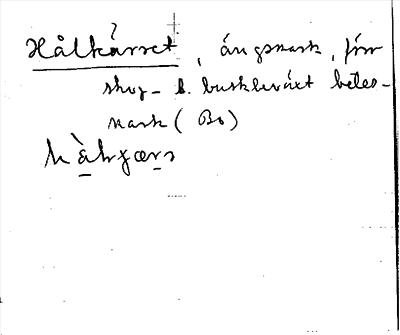 Hålkärret, ängsmark, förr
skog- o. buskbeväxt betes-
mark (Bo)